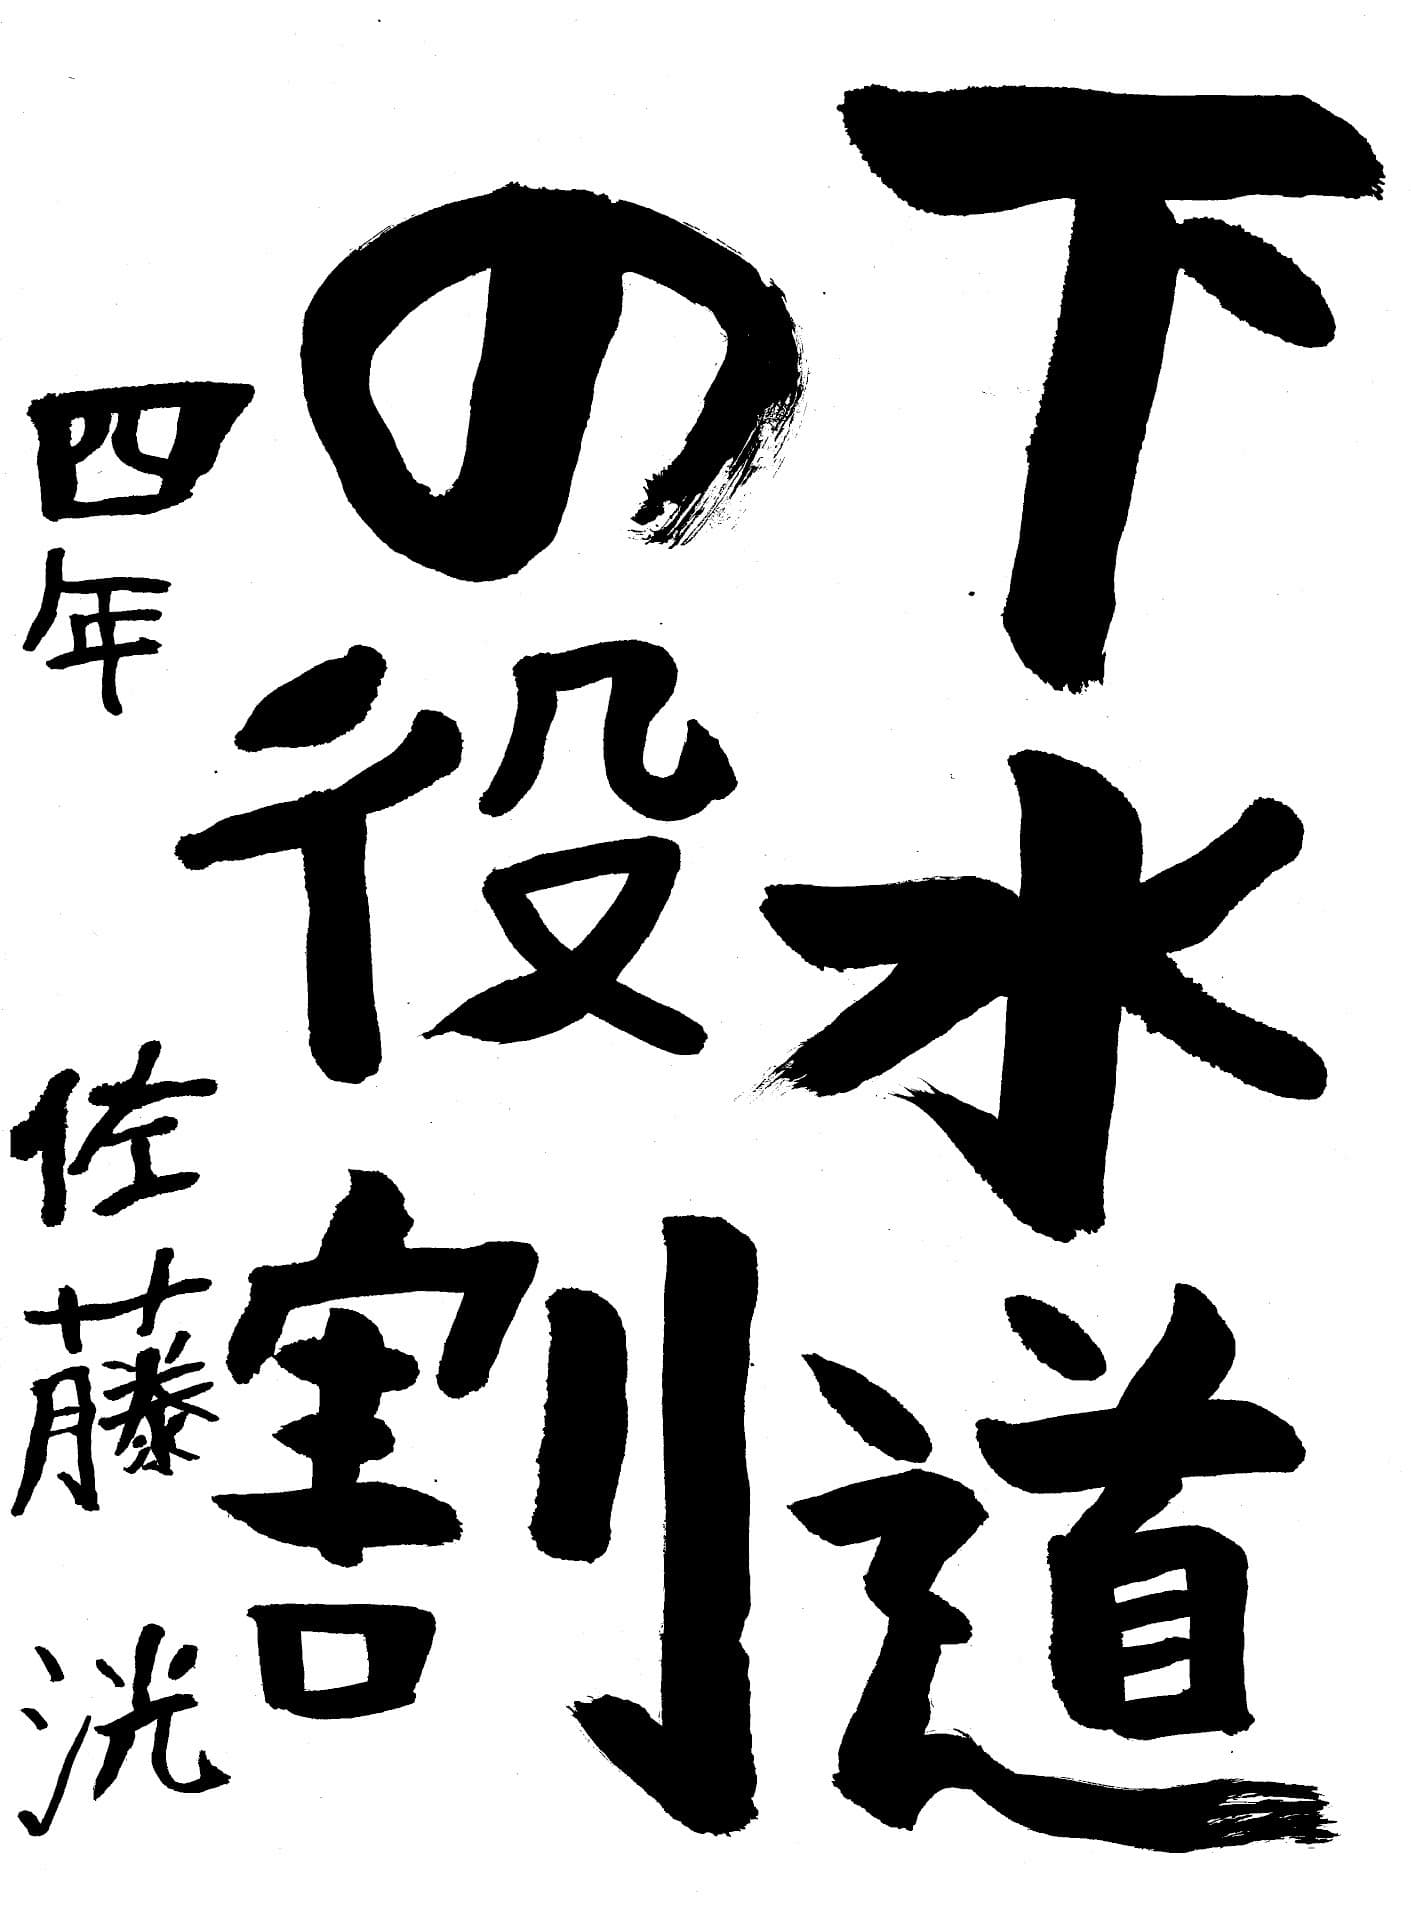 下水道
の役割
四年 佐藤 洸